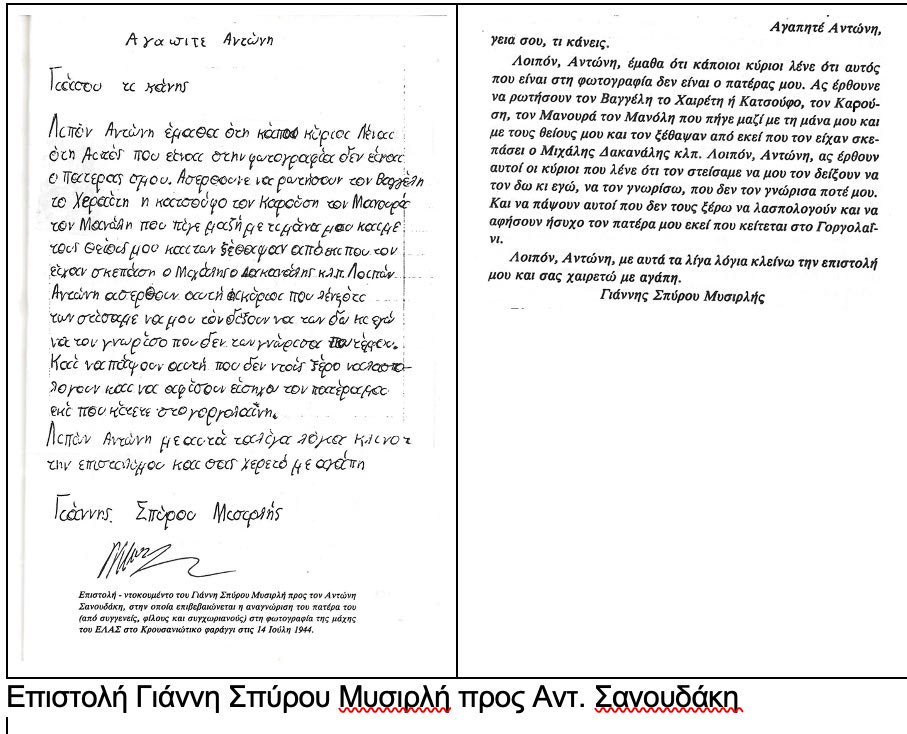 Αγαπιτε Αντώνη
Γιάσου τι κάνης
Λιπὸν Αντώνη έμαθα ότη κάποι κύριοι Λένε
ότη Αυτός που είναι στην φωτογραφία δεν είναι
ο Πατέρας μου. Ασερθουνε να ρωτήσουν τον Βαγγέλη
το Χεραίτη η κατσούφο τον Καρούση τον Μανουρά
τον Μανόλη που πίγε μαζή με τιμάνα μου και με
τους θείους μου και τον ξέθαψαν από εκι που τον
είχαν σκεπάσι ο Μιχάλης ο Δακανάλης κ.λ.π. Λοιπόν
Αντώνη ασερθουν αυτή ικύριοι που λένε ότι
τον στίσαμε να μου τον δείξουν να τον δω κι εγώ
να τον γνωρίσο που δεν τον γνώρισα ποτέμου.
Και να πάψουν αυτή που δεν ντούς ξέρο ναλασπο-
λογουν και να αφίσουν είσηχο τον πατέραμου
εκί που κίτετε στο γοργολαΐνη.
Λιπὸν Αντώνη με αυτά ταλίγα λόγια κλινο
την επιστολήμου και σας χερετό με αγάπη
Γιάννης Σπύρου Μισιρλής
Επιστολή - ντοκουμέντο του Γιάννη Σπύρου Μυσιρλή προς τον Αντώνη
Σανουδάκη, στην οποία επιβεβαιώνεται η αναγνώριση του πατέρα του
(από συγγενείς, φίλους και συγχωριανούς) στη φωτογραφία της μάχης
του ΕΛΑΣ στο Κρουσανιώτικο φαράγγι στις 14 Ιούλη 1944.
Αγαπητέ Αντώνη,
γεια σου, τι κάνεις.
Λοιπόν, Αντώνη, έμαθα ότι κάποιοι κύριοι λένε ότι αυτός
που είναι στη φωτογραφία δεν είναι ο πατέρας μου. Ας έρθουνε
να ρωτήσουν τον Βαγγέλη το Χαιρέτη ή Κατσούφο, τον Καρού-
ση, τον Μανουρά τον Μανόλη που πήγε μαζί με τη μάνα μου και
με τους θείους μου και τον ξέθαψαν από εκεί που τον είχαν σκε-
πάσει ο Μιχάλης Δακανάλης κλπ. Λοιπόν, Αντώνη, ας έρθουν
αυτοί οι κύριοι που λένε ότι τον στείσαμε να μου τον δείξουν να
τον δω κι εγώ, να τον γνωρίσω, που δεν τον γνώρισα ποτέ μου.
Και να πάψουν αυτοί που δεν τους ξέρω να λασπολογούν και να
αφήσουν ήσυχο τον πατέρα μου εκεί που κείτεται στο Γοργολαΐ-
νι.
Λοιπόν, Αντώνη, με αυτά τα λίγα λόγια κλείνω την επιστολή
μου και σας χαιρετώ με αγάπη.
Γιάννης Σπύρου Μυσιρλής
Επιστολή Γιάννη Σπύρου Μυσιρλή προς Αντ. Σανουδάκη